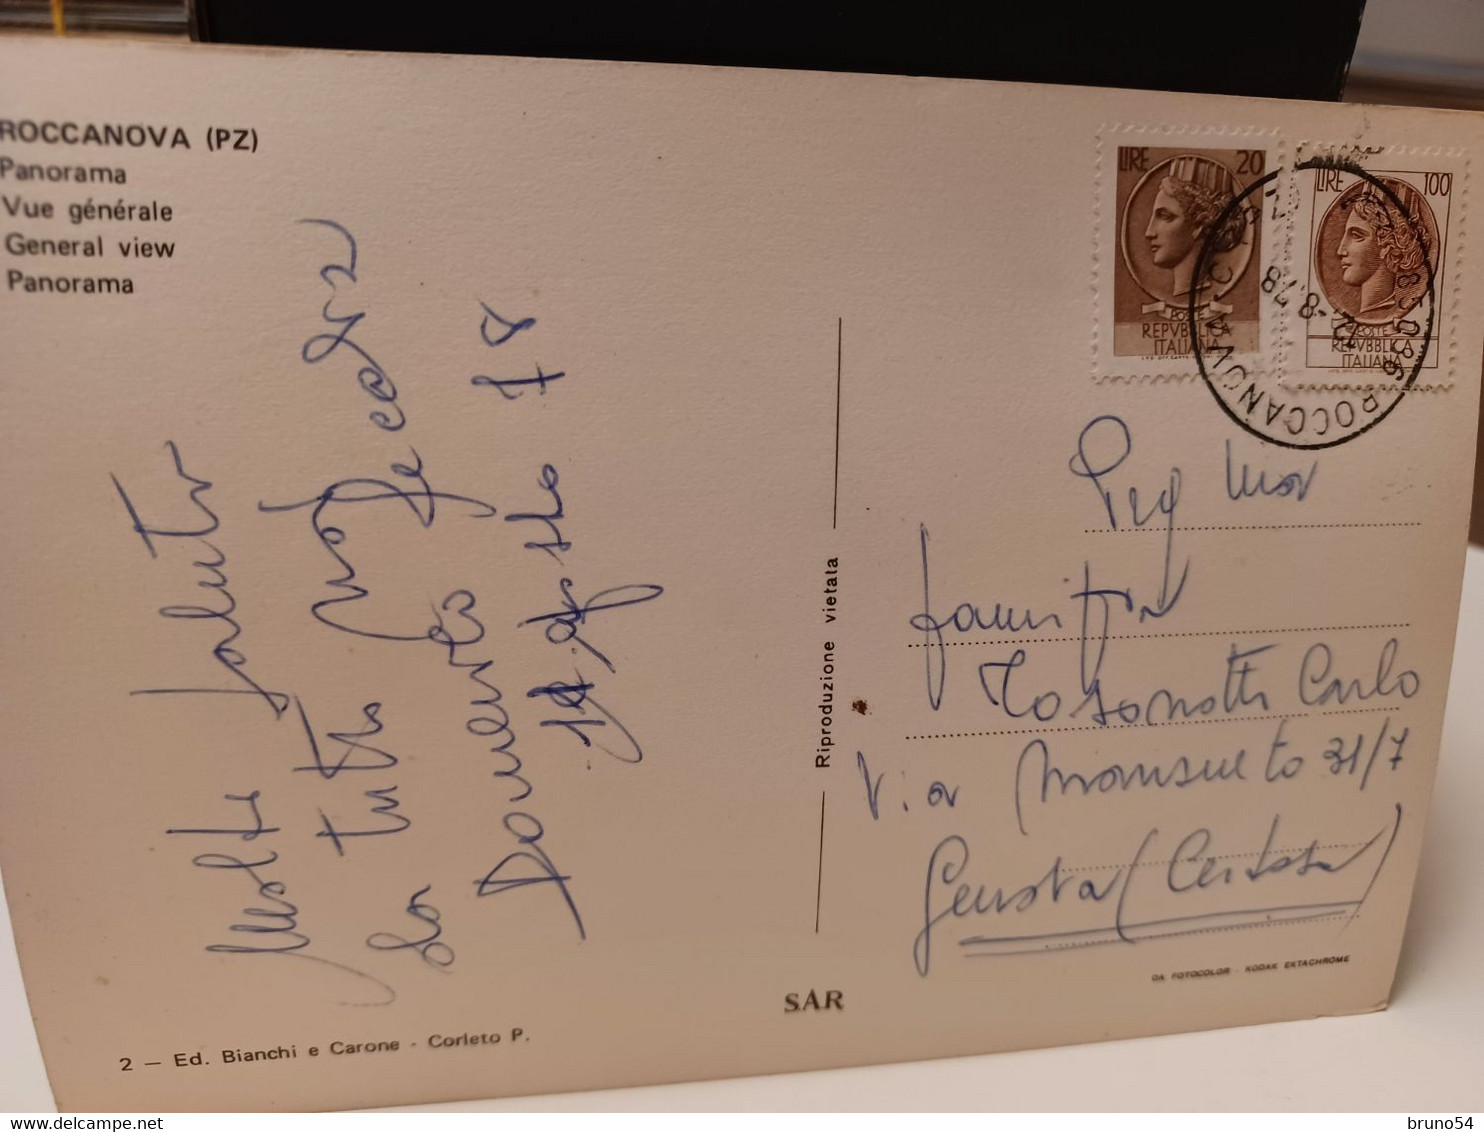 ROCCANOVA (PZ)
Panorama
Vue générale
General view
Panorama
Molti saluti
a tutti voi
da
Domenico
agosto 78
2 — Ed. Bianchi e Carone - Corleto P.
Riproduzione vietata
SAR
LIRE 20
POSTE
REPVBBLICA
ITALIANA
LIRE 100
POSTE
REPVBBLICA
ITALIANA
85036 ROCCANOVA
-8.78
famiglia
Tosonotti Carlo
Via Mansueto 31/7
Genova (Certosa)
DA FOTOCOLOR - KODAK EKTACHROME
bruno54